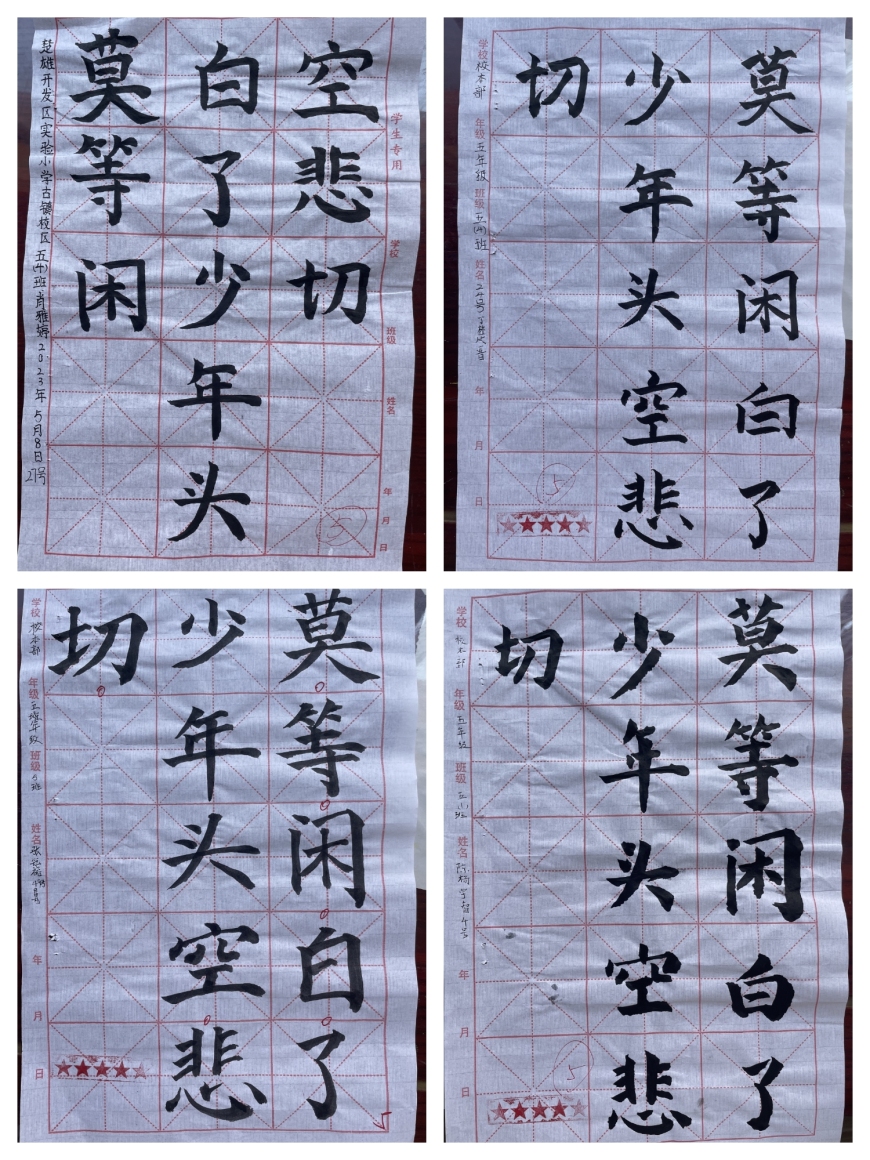 楚雄开发区实验小学古镇校区五(4)班肖雅婷2023年5月8日
27号
莫等闲
白了少年头
空悲切
学生专用
学校 班级 姓名 年 月 日
5
莫等闲白了
少年头空悲
切
学校 校本部 年级 五年级 班级 五(4)班 姓名 24号 年 月 日
5
莫等闲白了
少年头空悲
切
学校 校本部 年级 班级 5班 姓名 张 年 月 日
5
莫等闲白了
少年头空悲
切
学校 校本部 年级 五年级 班级 姓名 年 月 日
5